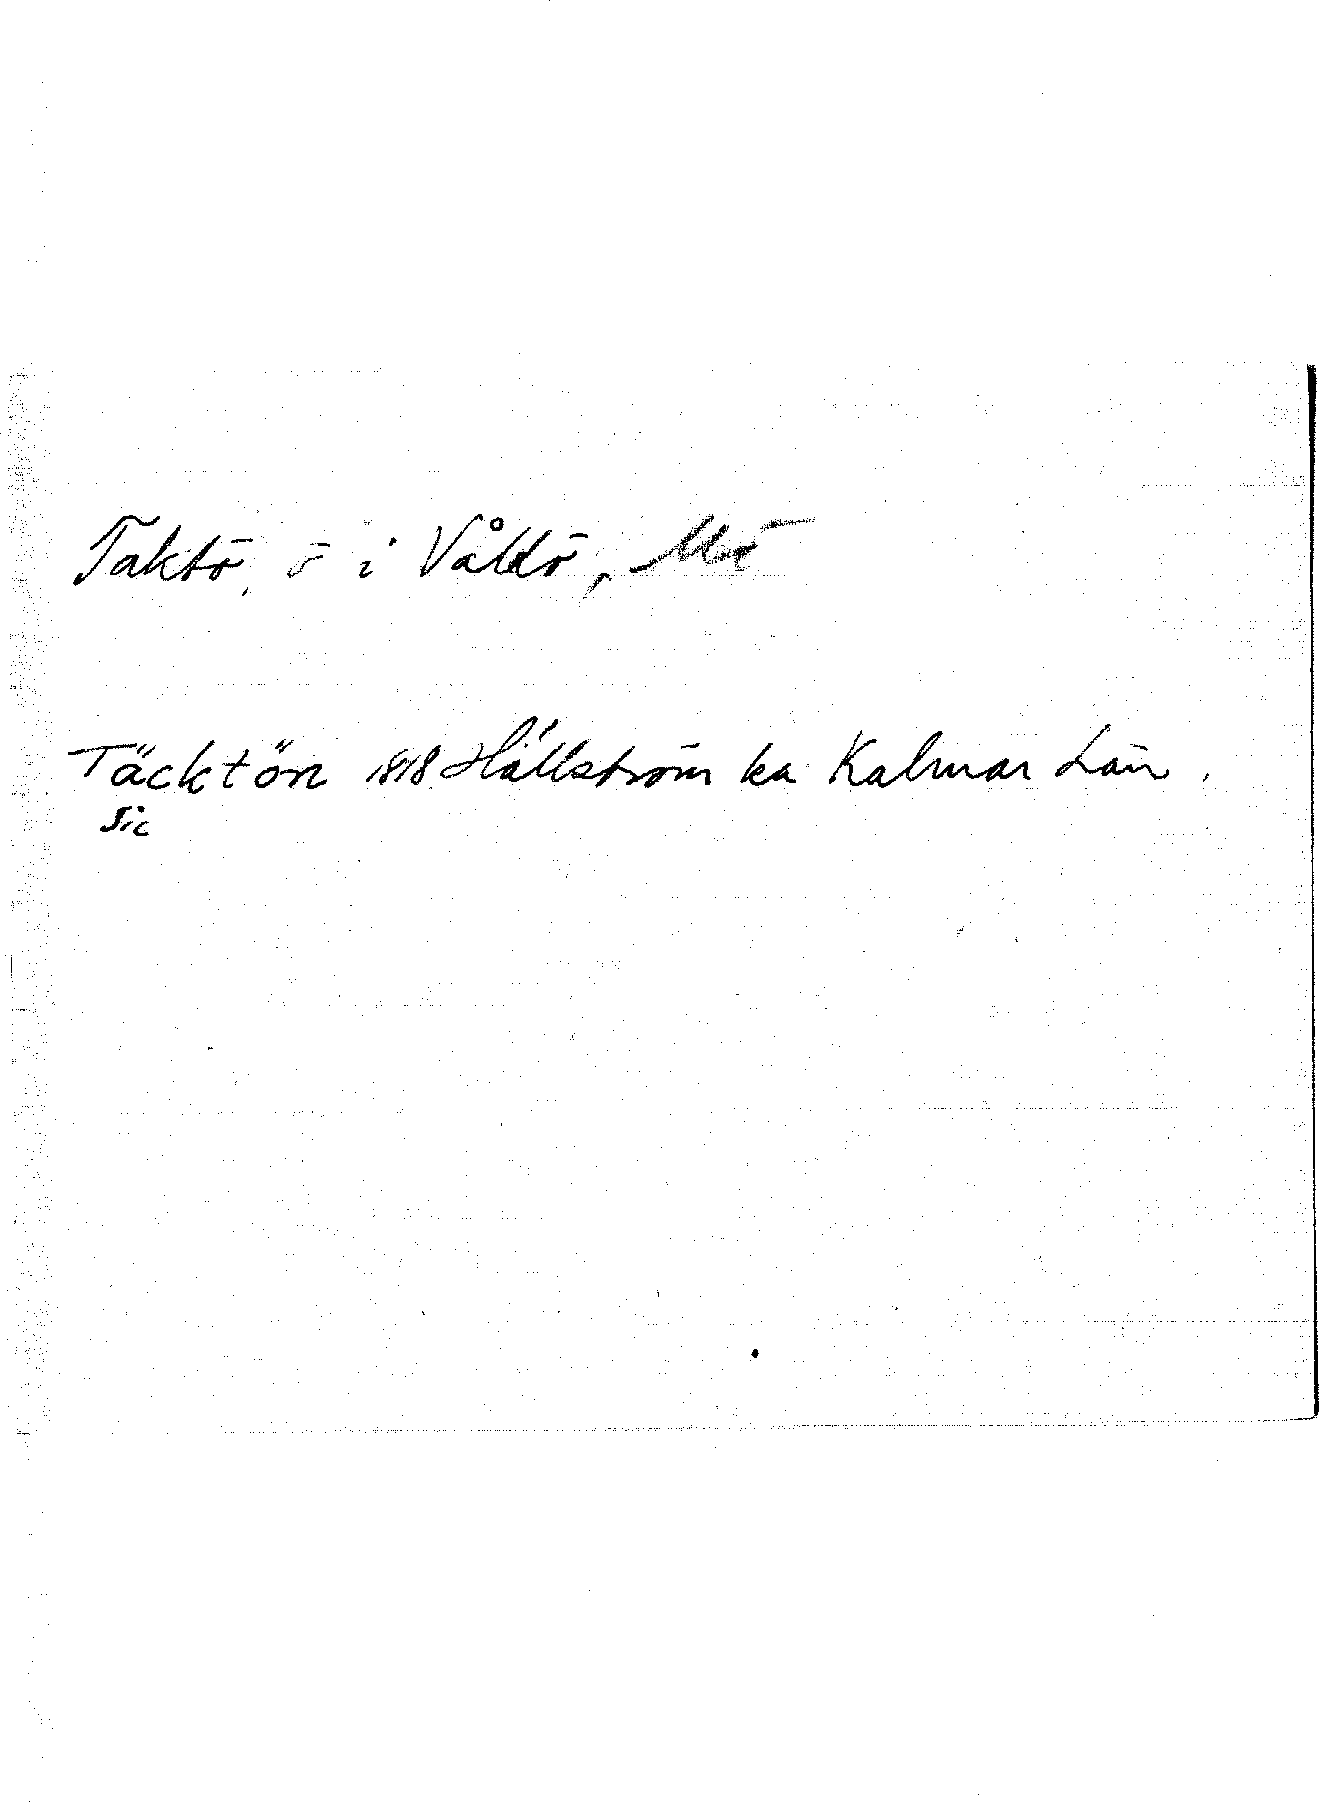 Taktö, ö i Våldö, Mö
Täcktön 1818 Hällström ka Kalmar Län.
Sic